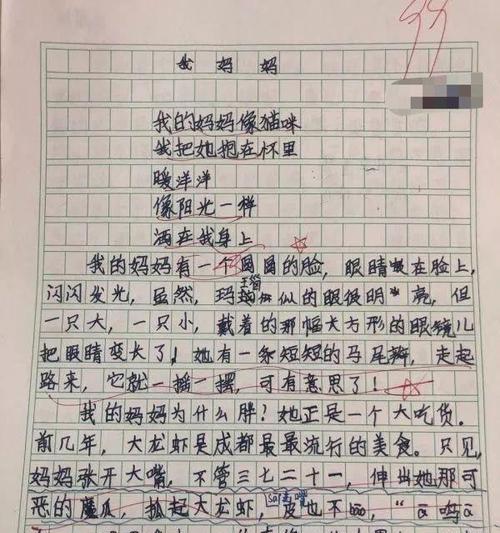 99
我妈妈
我的妈妈像猫咪
我把她抱在怀里
暖洋洋
像阳光一样
洒在我身上
我的妈妈有一个圆圆的脸，眼睛嵌在脸上，
闪闪发光，虽然，玛瑙似的眼很明亮，但
一只大，一只小，戴着的那幅大方形的眼镜儿
把眼睛变长了，她有一条短短的马尾辫，走起
路来，它就一摇一摆，可有意思了！
我的妈妈为什么胖？她正是一个大吃货。
前几年，大龙虾是成都最最流行的美食。只见，
妈妈张开大嘴，不管三七二十一，伸出她那可
恶的魔爪，抓起大龙虾，皮也不